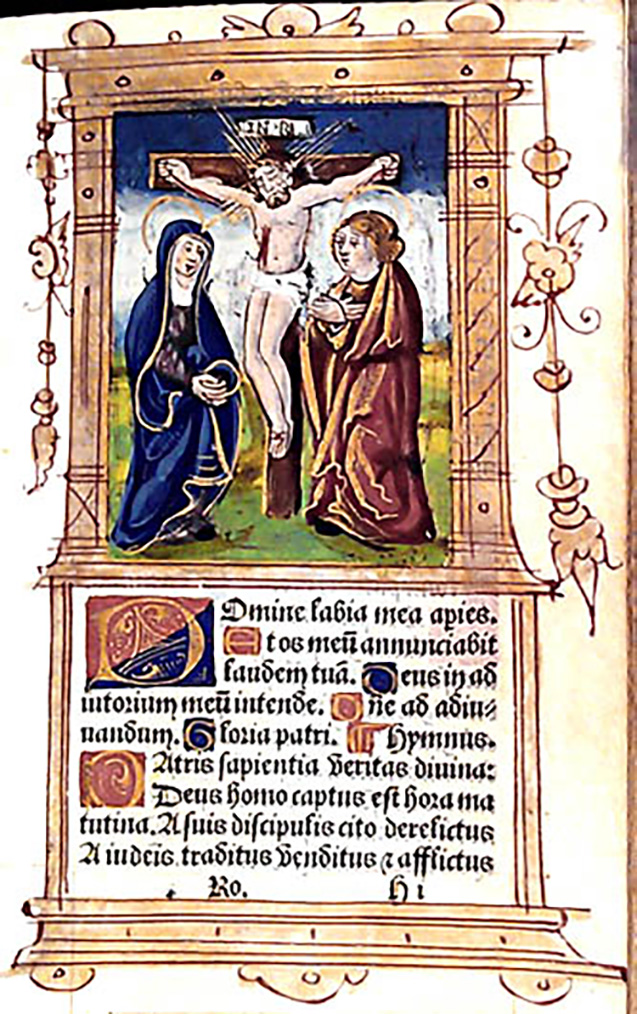 I·N·R·I
Dmine labia mea apies.
Et os meū annunciabit
laudem tuā. Deus in ad
iutorium meū intende. Dñe ad adiu-
uandum. Gloria patri. Hymnus.
PAtris sapientia veritas diuina:
Deus homo captus est hora ma
tutina. A suis discipulis cito derelictus
A iudeis traditus venditus ⁊ afflictus
Ro. h i